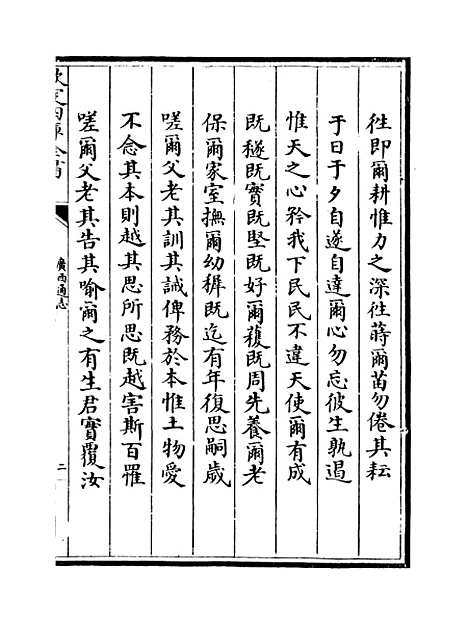 徃即爾耕惟力之深徃蒔爾苗勿倦其耘
于日于夕自遂自達爾心勿忘彼生孰遏
惟天之心矜我下民民不違天使爾有成
既穟既實既堅既好爾穫既周先養爾老
保爾家室撫爾幼穉既迄有年復思嗣歲
嗟爾父老其訓其誠俾務於本惟土物愛
不念其本則越其思所思既越害斯百罹
嗟爾父老其告其喻爾之有生君實覆汝
欽定四庫全書
廣西通志
二